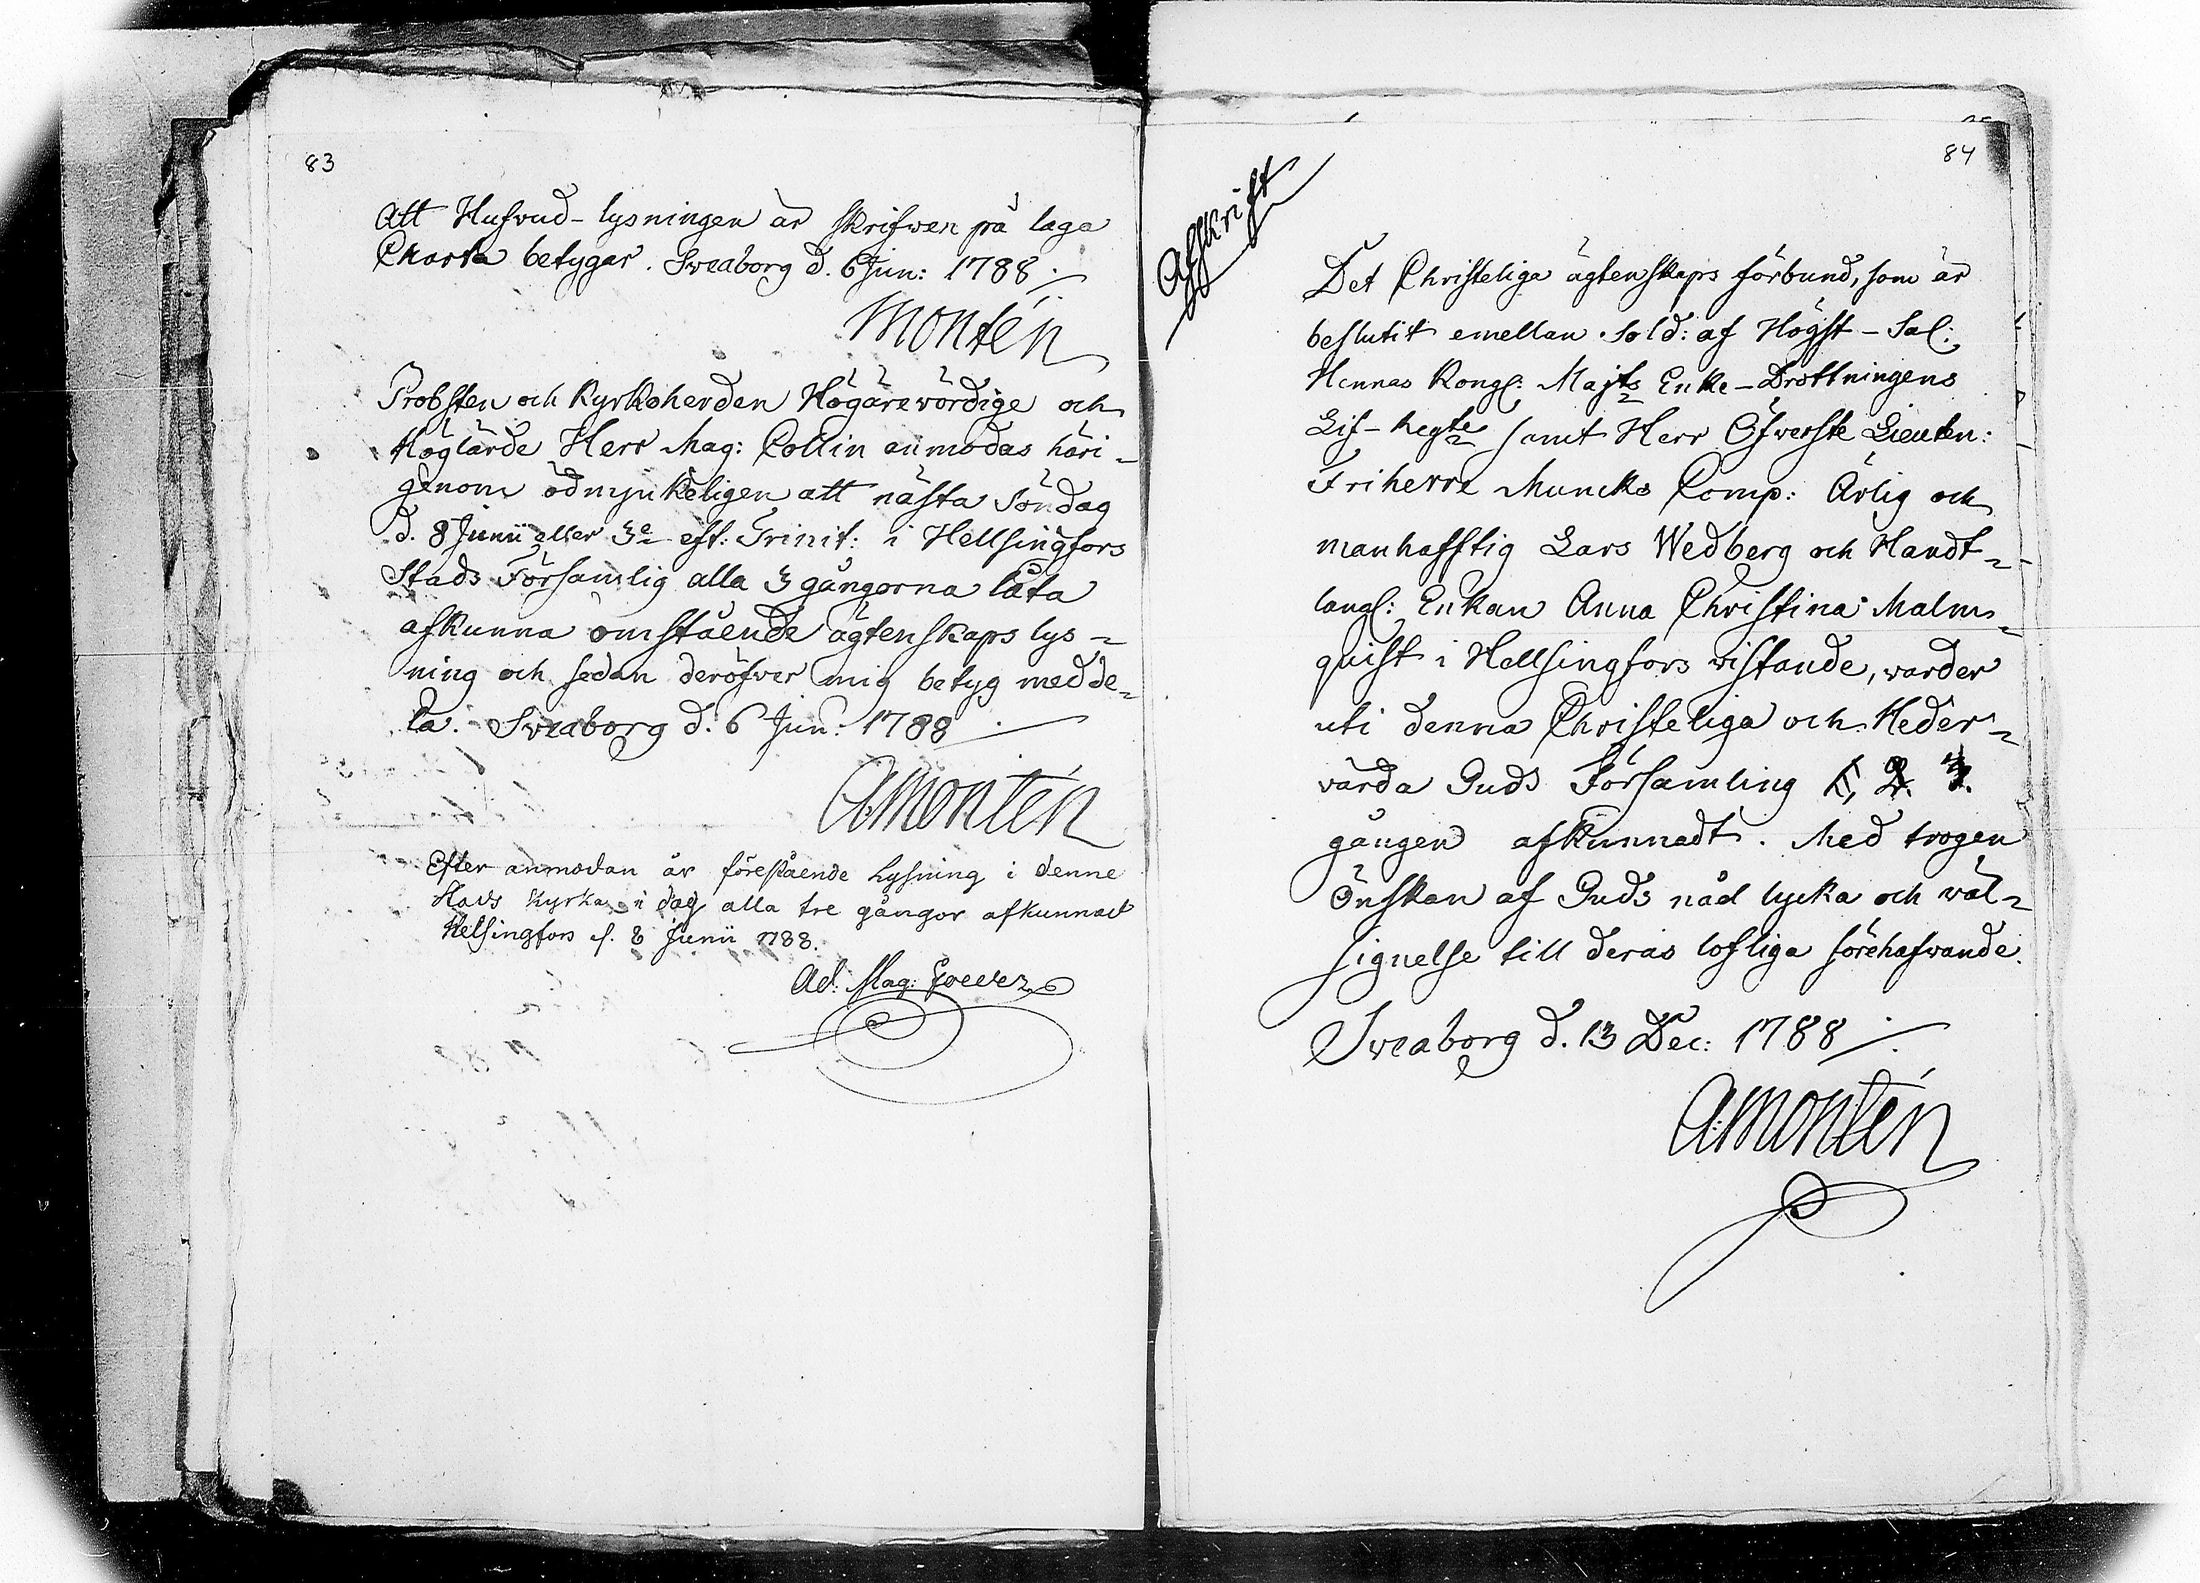 83
Att Hufvud-lysningen är skrifwen på laga
Charta betygar. Sveaborg d. 6 Jun: 1788
Montén
Probsten och Kyrkoherden Högärewördige och
Höglärde Herr Mag: Collin anmodas häri-
genom ödmjukeligen att nästa Söndag
d. 8 Junii eller 3e eft: Trinit: i Hellsingfors
Stads Församlig alla 3 gångorna låta
afkunna omstående ägtenskaps lys-
ning och sedan deröfver mig betyg medde-
la. Sveaborg d. 6 Jun: 1788
AMontén
Efter anmodan är förestående Lysning i denne
Stads Kyrka i dag alla tre gångor afkunnad
Helsingfors d. 8 Junii 1788.
Ad: Mag:
84
Afskrift
Det Christeliga ägtenskaps förbund, som är
beslutit emellan Sold: af Högst-Sal:
Hennas Kongl: Majts Enke-Drottningens
Lif-Regte samt Herr Öfwerste Lieuten:
Friherre Muncks Comp: Ärlig och
manhafftig Lars Wedberg och Handt-
langl: Enkan Anna Christina Malm-
quist i Hellsingfors vistande, warder
uti denna Christeliga och Heder-
värda Guds Församling 1, 2. 3.
gången afkunnadt. Med trogen
Önskan af Guds nåd lycka och väl-
signelse till deras lofliga förehafvande.
Sveaborg d. 13 Dec: 1788
A:Montén